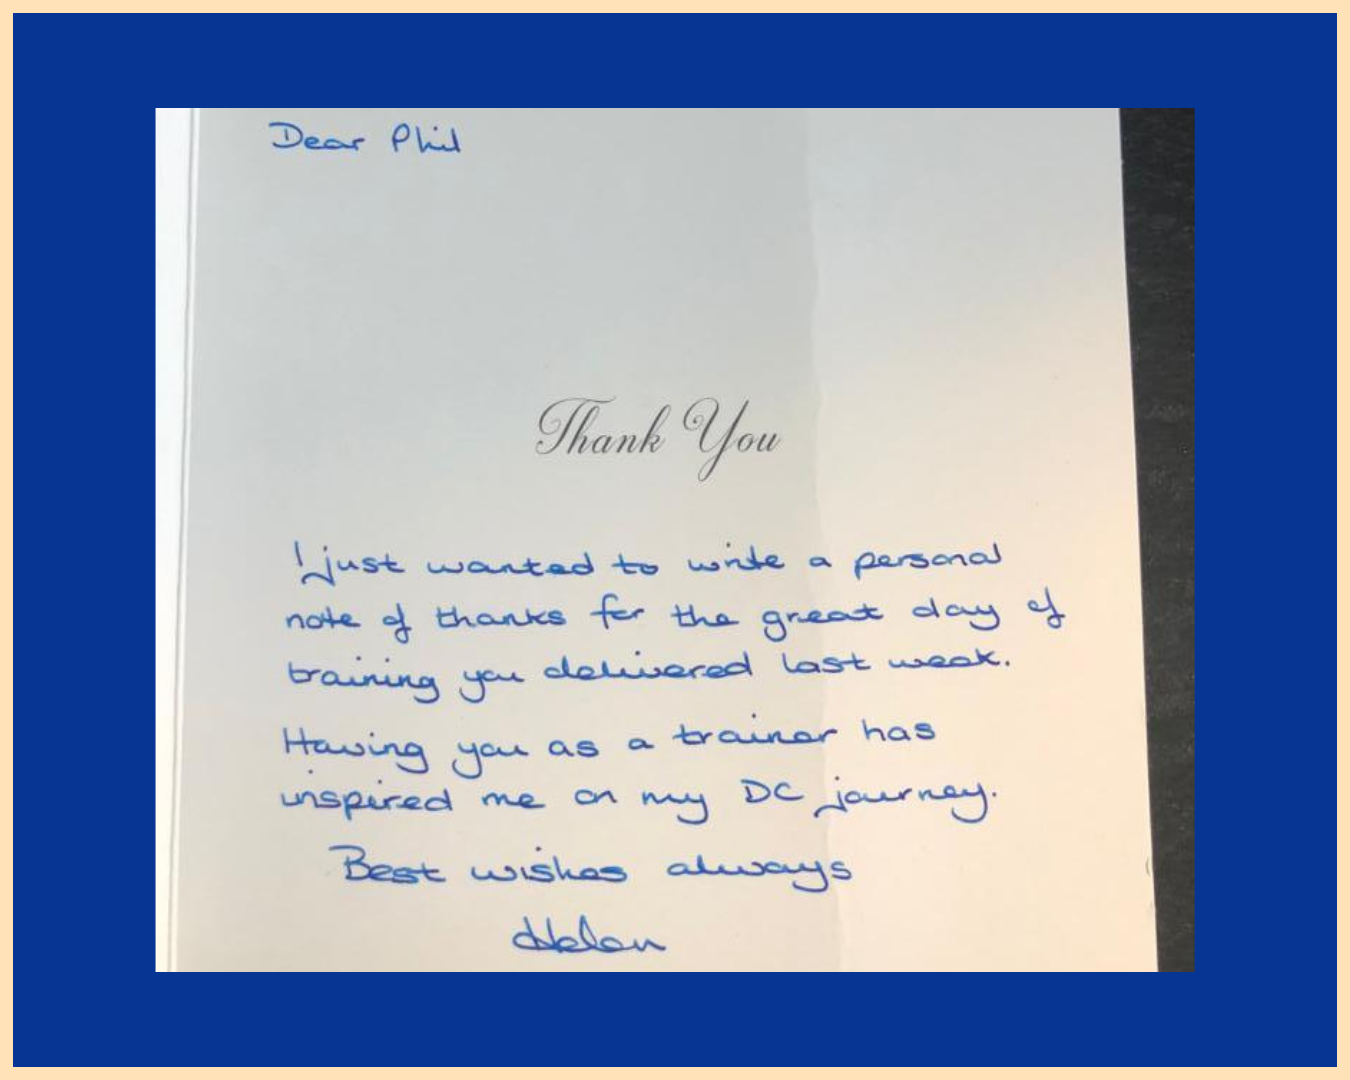 Dear Phil
Thank You
I just wanted to write a personal
note of thanks for the great day of
training you delivered last week.
Having you as a trainer has
inspired me on my DC journey.
Best wishes always
Helen